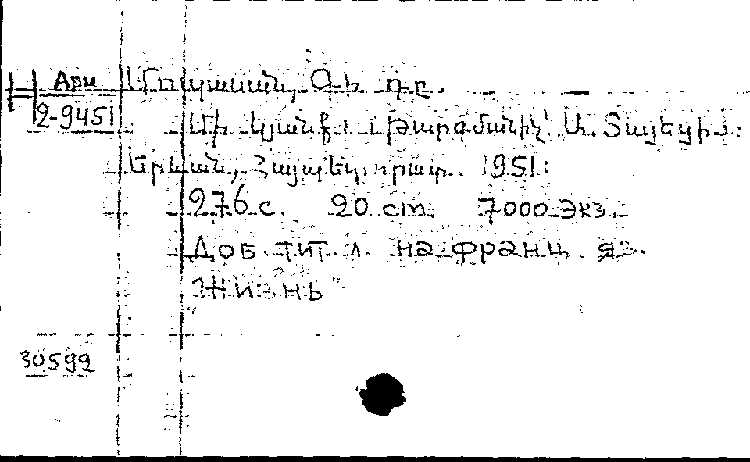 Арм
2-9451
Մոպասան, Գի դը.
Մի կյանք: Թարգմանիչ՝ Ա. Տայեցի:
Երևան, Հայպետհրատ. 1951:
276 с. 20 cm. 7000 экз.
Доб. тит. л. на франц. яз.
"Жизнь"
30592